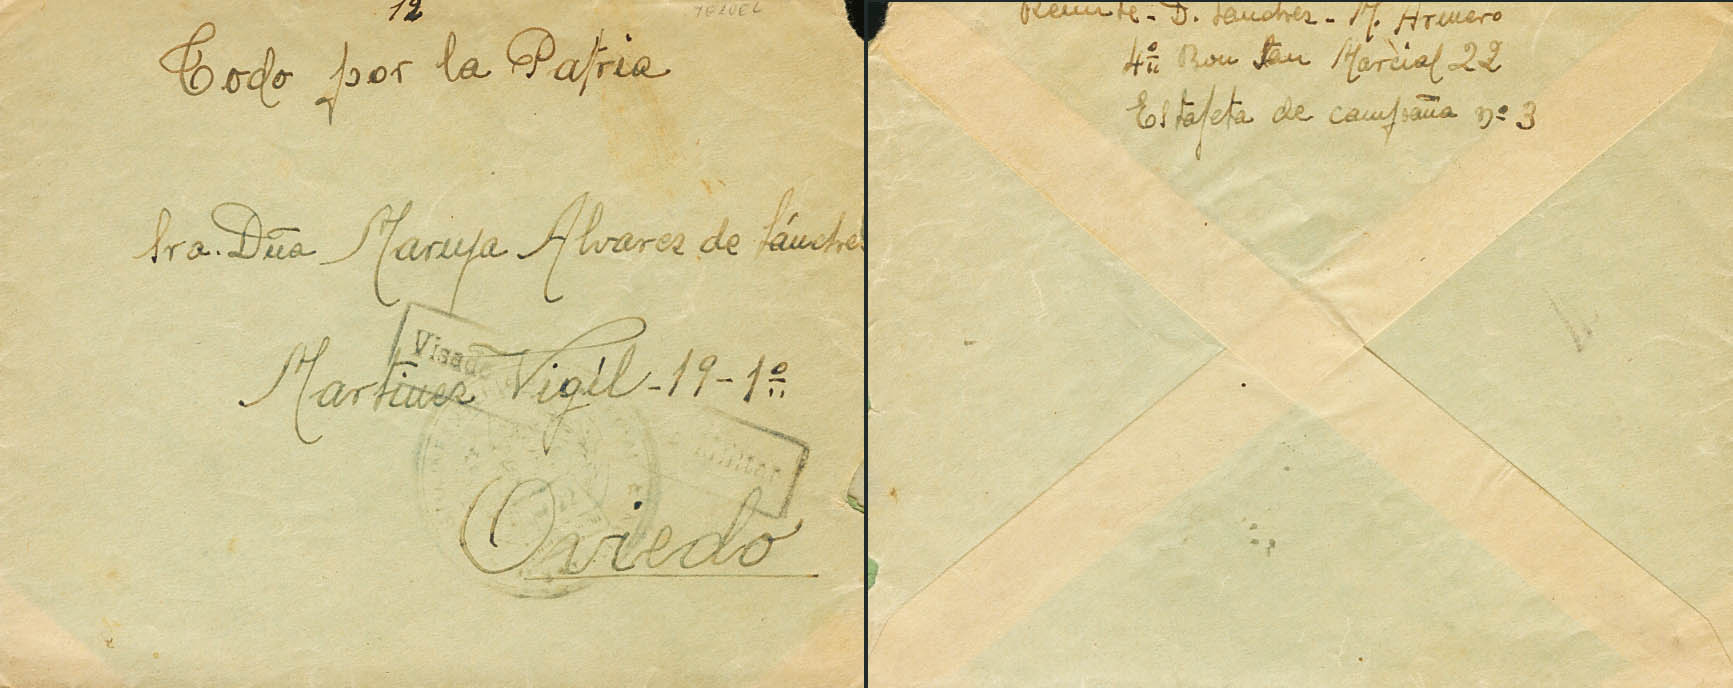 12
TERUEL
Todo por la Patria
Sra. Dña Maruja Alvarez de Sánchez
Visado
Martinez Vigil - 19 - 1º
Oviedo
Remite - D. Sanchez - M. Armero
4º Bon San Marcial 22
Estafeta de campaña nº 3